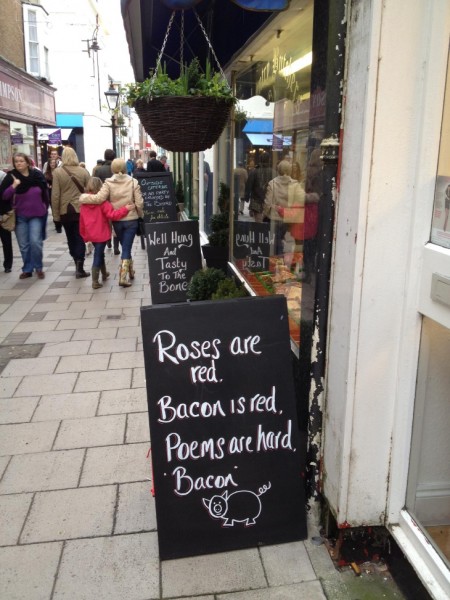 Roses are
red.
Bacon is red.
Poems are hard.
Bacon
Well Hung
And
Tasty
To The
Bone